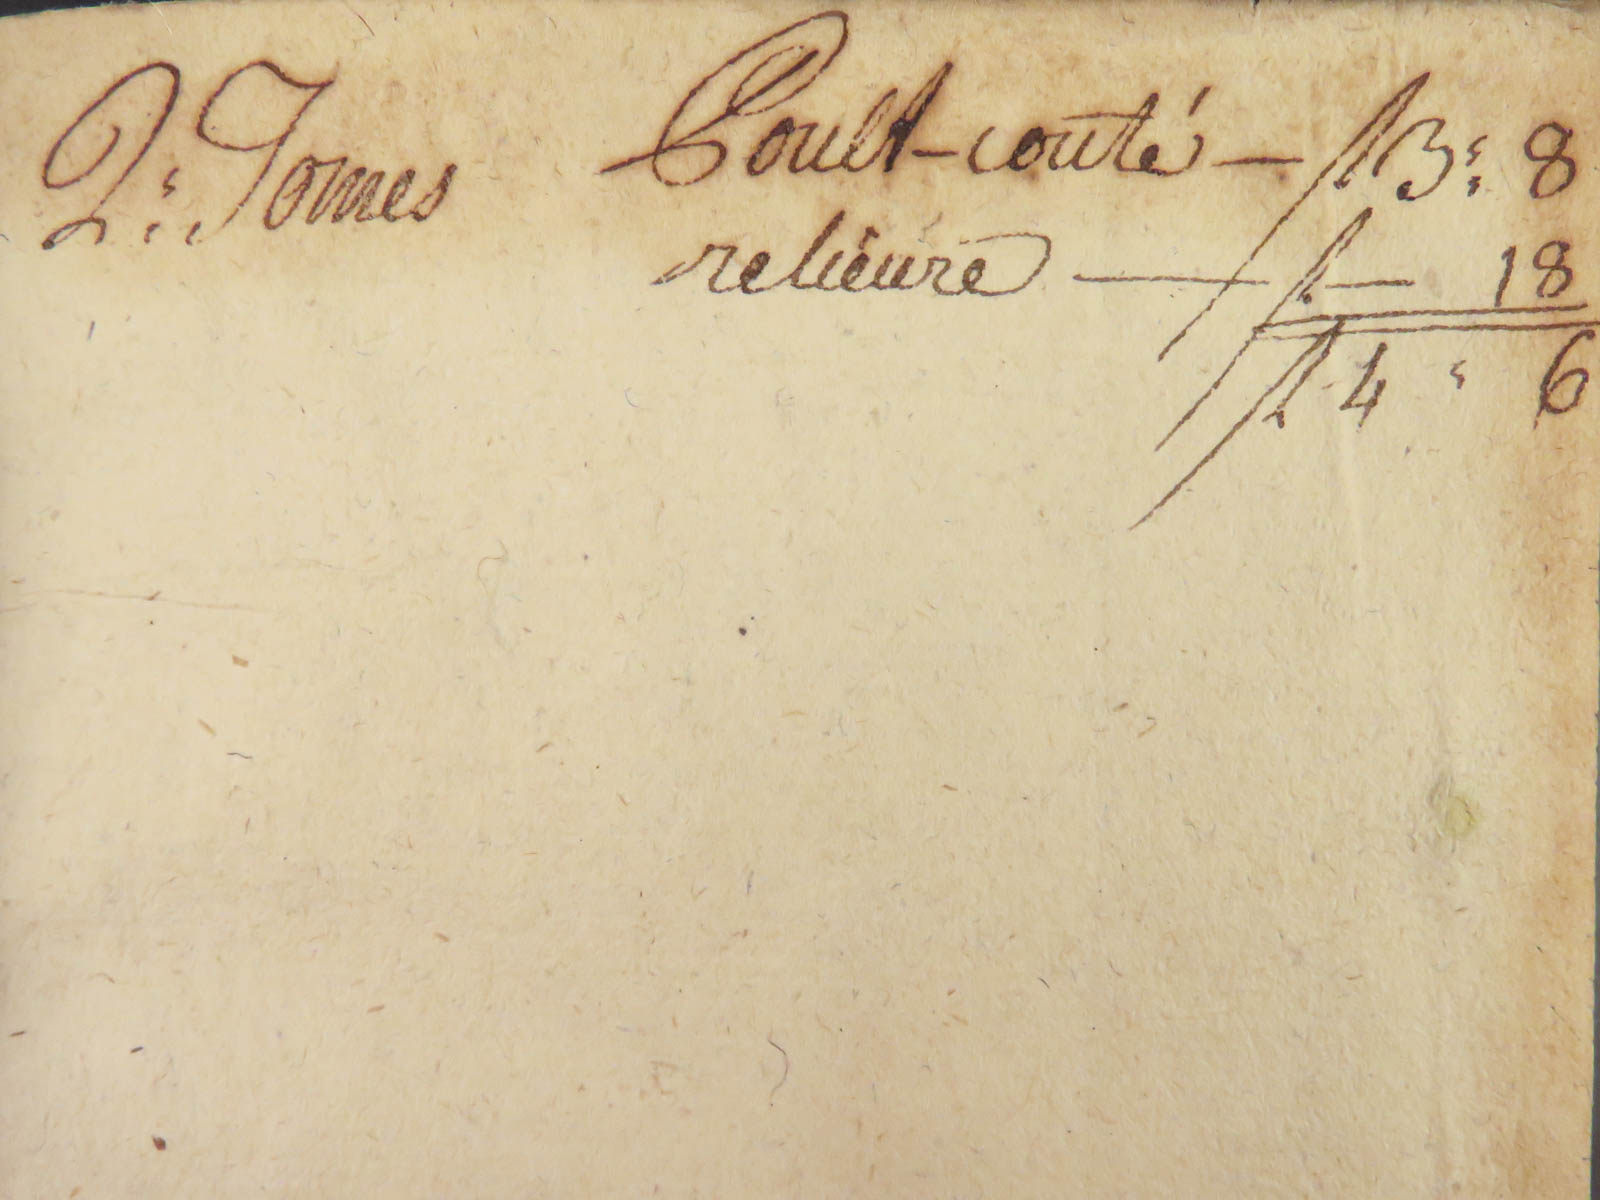 2: Tomes Coult-couté — ß 3: 8
reliéure — ß — 18
ß 4 : 6